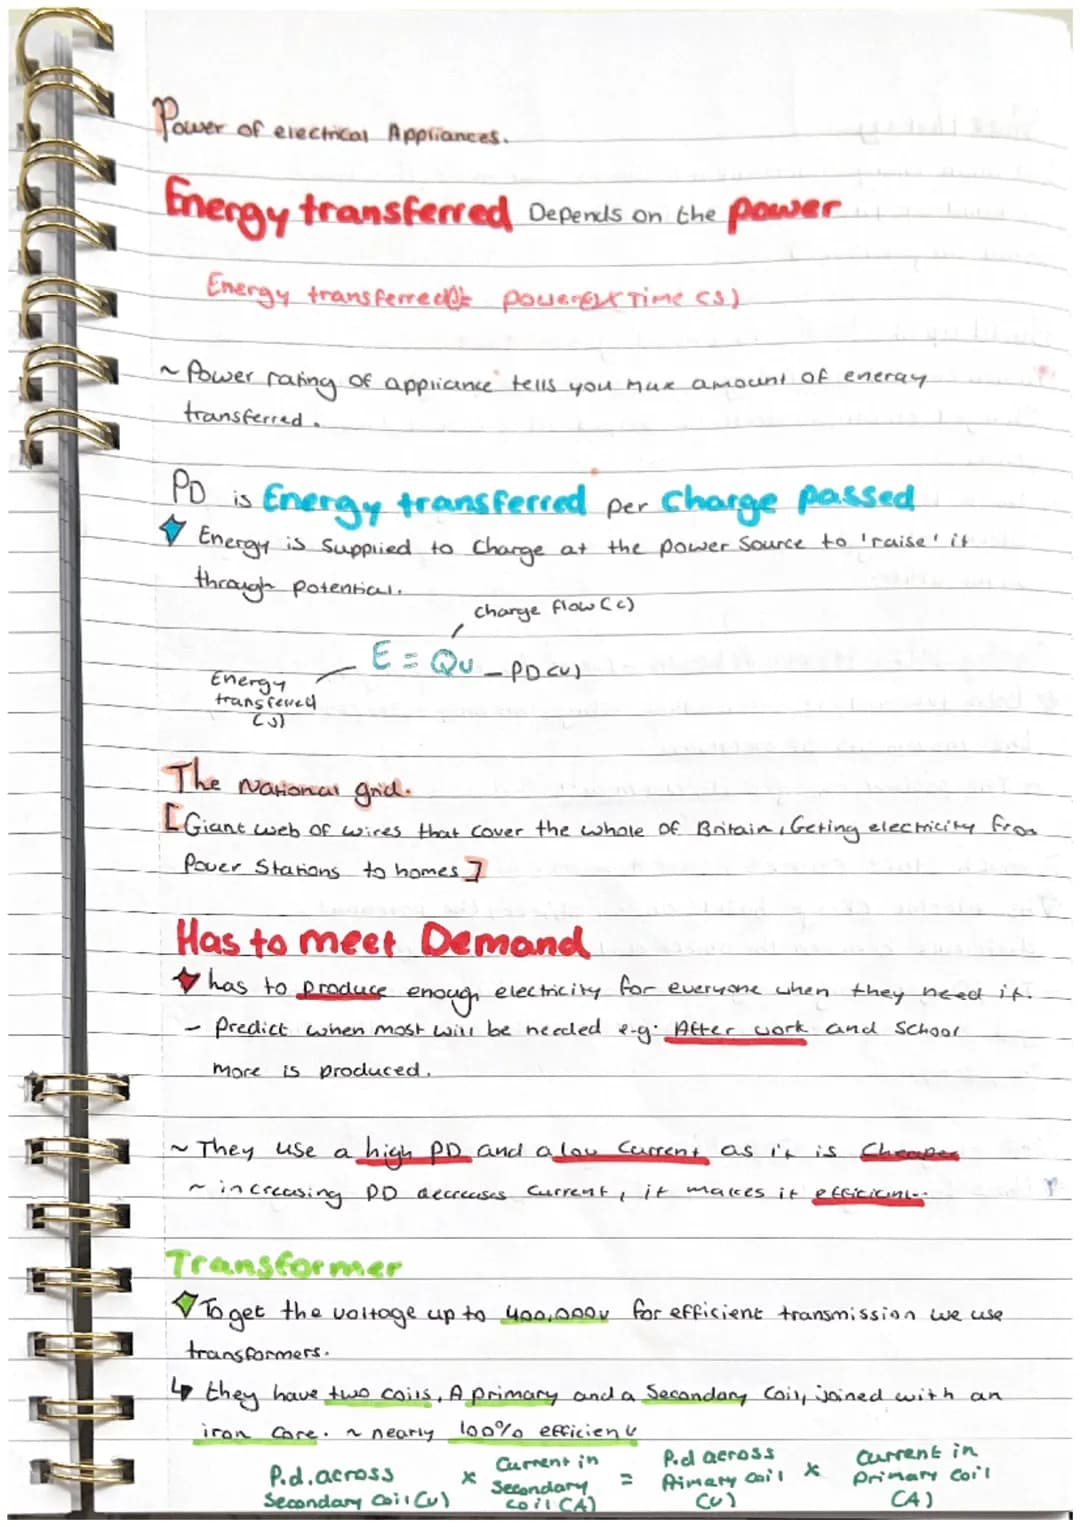 Power of electrical Appliances.
Energy transferred Depends on the power
Energy transferred(J)= power(W)X Time (s)
~ Power rating of appliance tells you max amount of energy
transferred.
PD is Energy transferred per Charge passed
Energy is Supplied to Charge at the power Source to 'raise' it
through potential.
charge flow (c)
E = QV - PD (V)
Energy
transferred
(J)
The National grid.
[Giant web of wires that cover the whole of Britain, Geting electricity from
Power Stations to homes]
Has to meet Demand
has to produce enough electricity for everyone when they need it.
- Predict when most will be needed e.g. After work and School
more is produced.
~ They use a high PD and a low Current as it is Cheaper
~ increasing PD decreases Current, it makes it efficient.
Transformer
To get the voltage up to 400,000v for efficient transmission we use
transformers.
↳ they have two coils, A primary and a Secondary Coil, joined with an
iron core. ~ nearly 100% efficient
P.d. across Secondary Coil (V) × Current in Secondary coil (A) = P.d across Primary Coil (V) × Current in primary Coil (A)